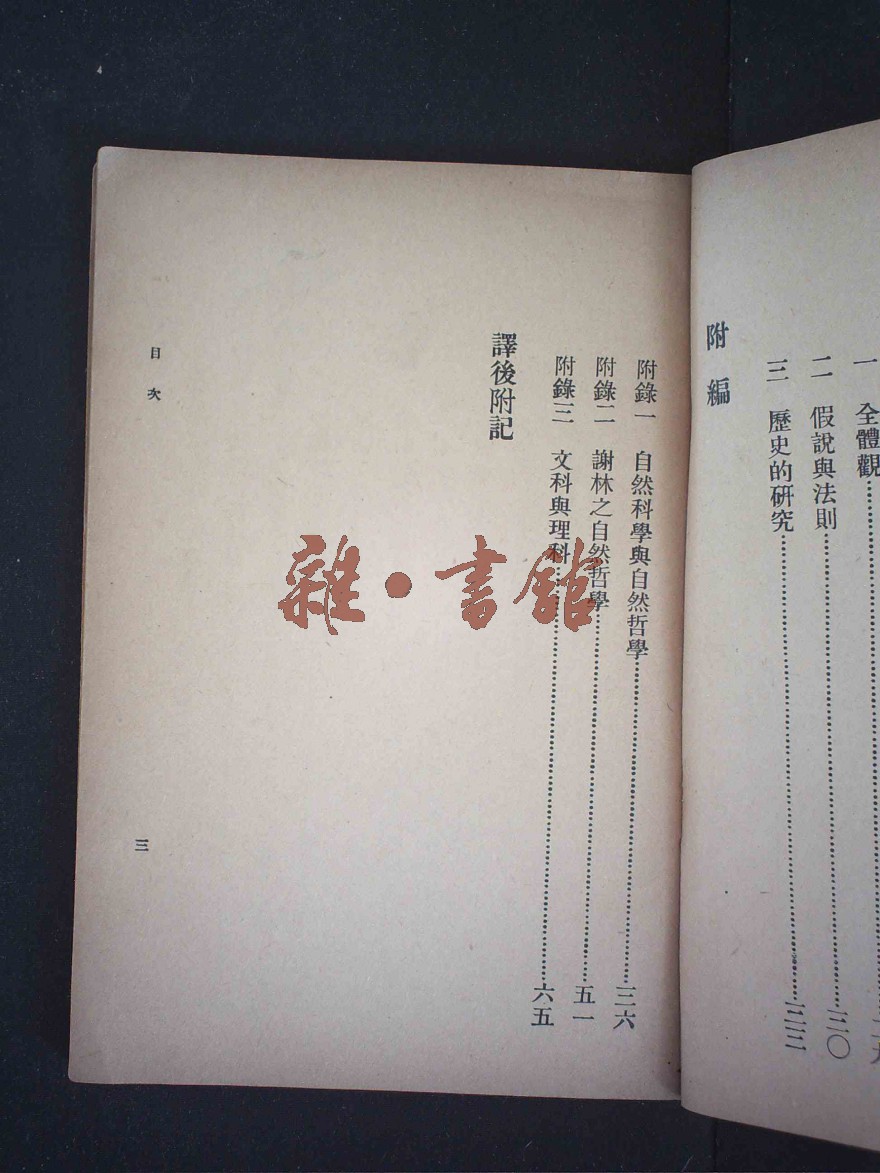 一 全體觀……
二 假說與法則……三〇
三 歷史的研究……三三
附編
附錄一 自然科學與自然哲學……三六
附錄二 謝林之自然哲學……五一
附錄三 文科與理科……六五
譯後附記
目次
三
雜·書館